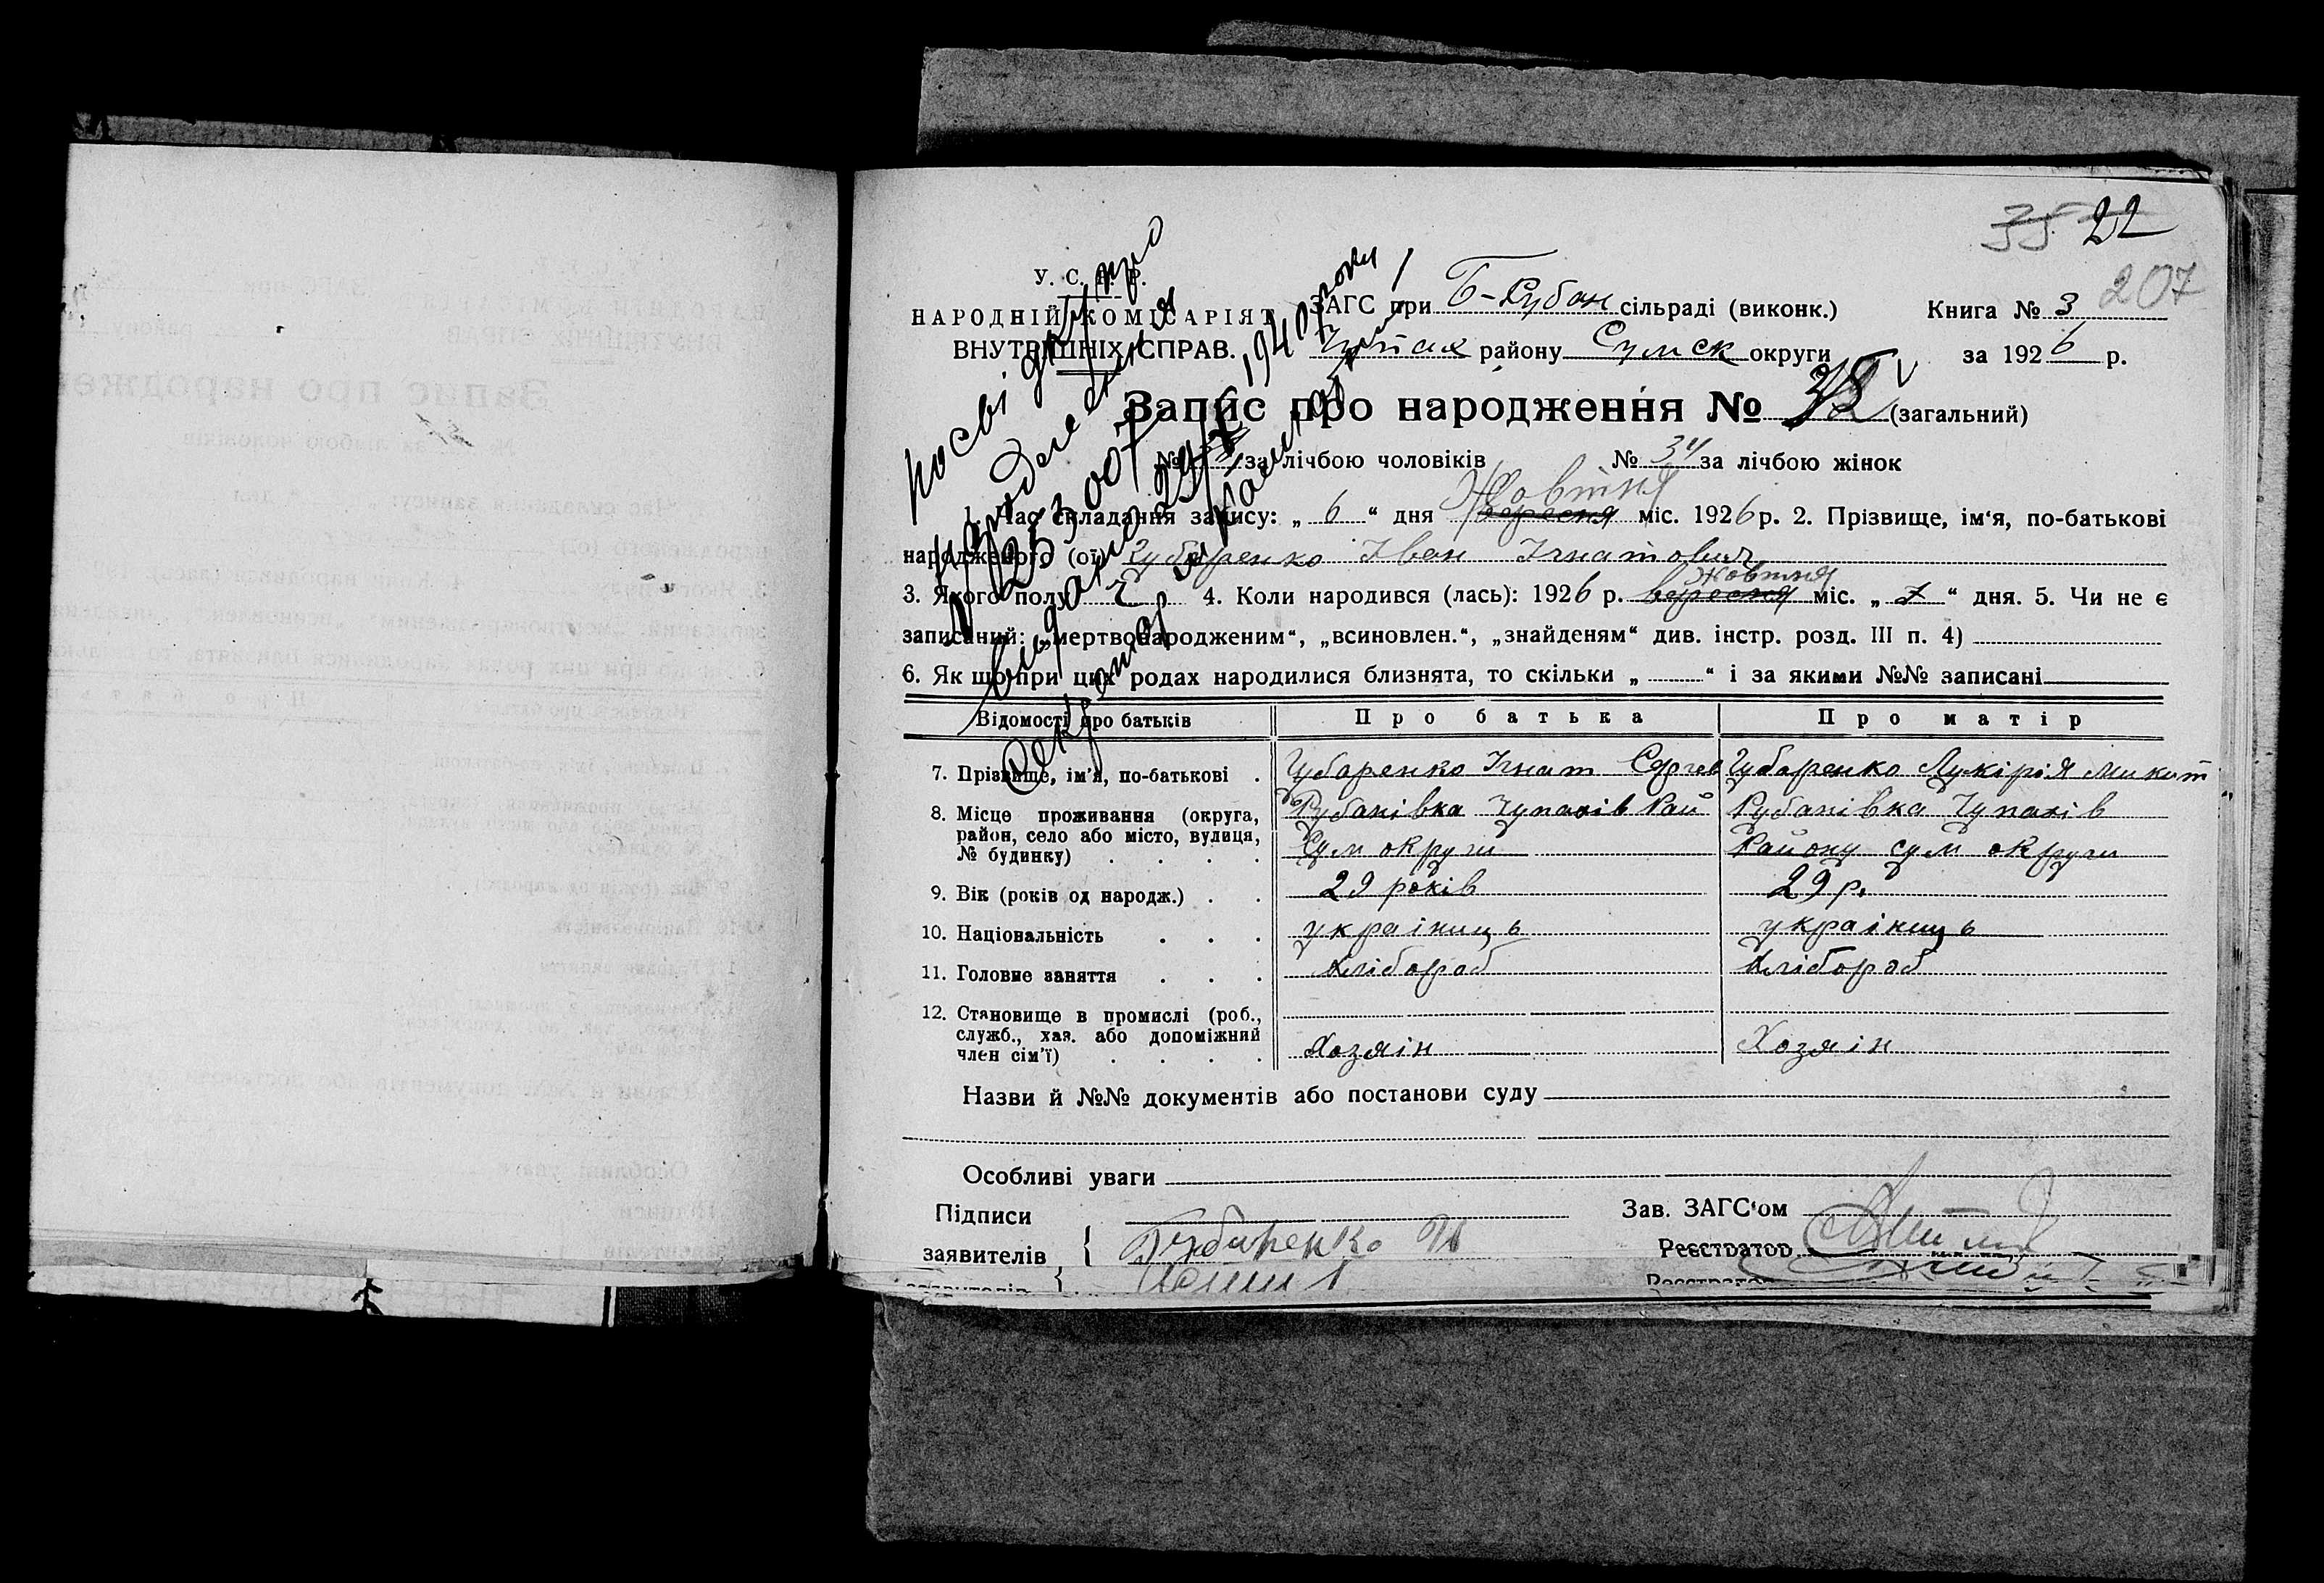 35 22
207
У. С. Р. Р.
НАРОДНІЙ КОМІСАРІЯТ
ВНУТРІШНІХ СПРАВ.
ЗАГС при Б-Рубан сільраді (виконк.)
району Сумск округи
Книга № 3
за 1926 р.
Запис про народження № (загальний)
№ за лічбою чоловіків № 34 за лічбою жінок
Жовтня
1. Час складання запису: „ 6 “ дня вересня міс. 1926 р. 2. Прізвище, ім‘я, по-батькові
народженого (ої) Губаренко Іван Ігнатович
жовтня
3. Якого полу ч 4. Коли народився (лась): 1926 р. вересня міс. „ “ дня. 5. Чи не є
записаний: „мертвонародженим“, „всиновлен.“, „знайденям“ див. інстр. розд. III п. 4)
6. Як що при цих родах народилися близнята, то скільки „ “ і за якими №№ записані
посвідку про
народження
відана 29/X 1940 року
Секретар
Відомості про батьків Про батька Про матір
7. Прізвище, ім‘я, по-батькові . Губаренко Ігнат Сергев Губаренко Лукірія Микит
8. Місце проживання (округа, Рубанівка Чупахів Рай Рубанівка Чупахів
район, село або місто, вулиця,
№ будинку) . . . . Сум округи Району сум округи
9. Вік (років од народж.) . . 29 років 29 р.
10. Національність . . . україниць україниць
11. Головне заняття . . . хлібороб хлібороб
12. Становище в промислі (роб.,
служб., хаз. або допоміжний
член сім‘ї) . . . . Хозяін Хозяін
Назви й №№ документів або постанови суду
Особливі уваги
Підписи
заявителів { Губаренко И
Зав. ЗАГС‘ом
Реєстратор
заявителів {
Реєстратор